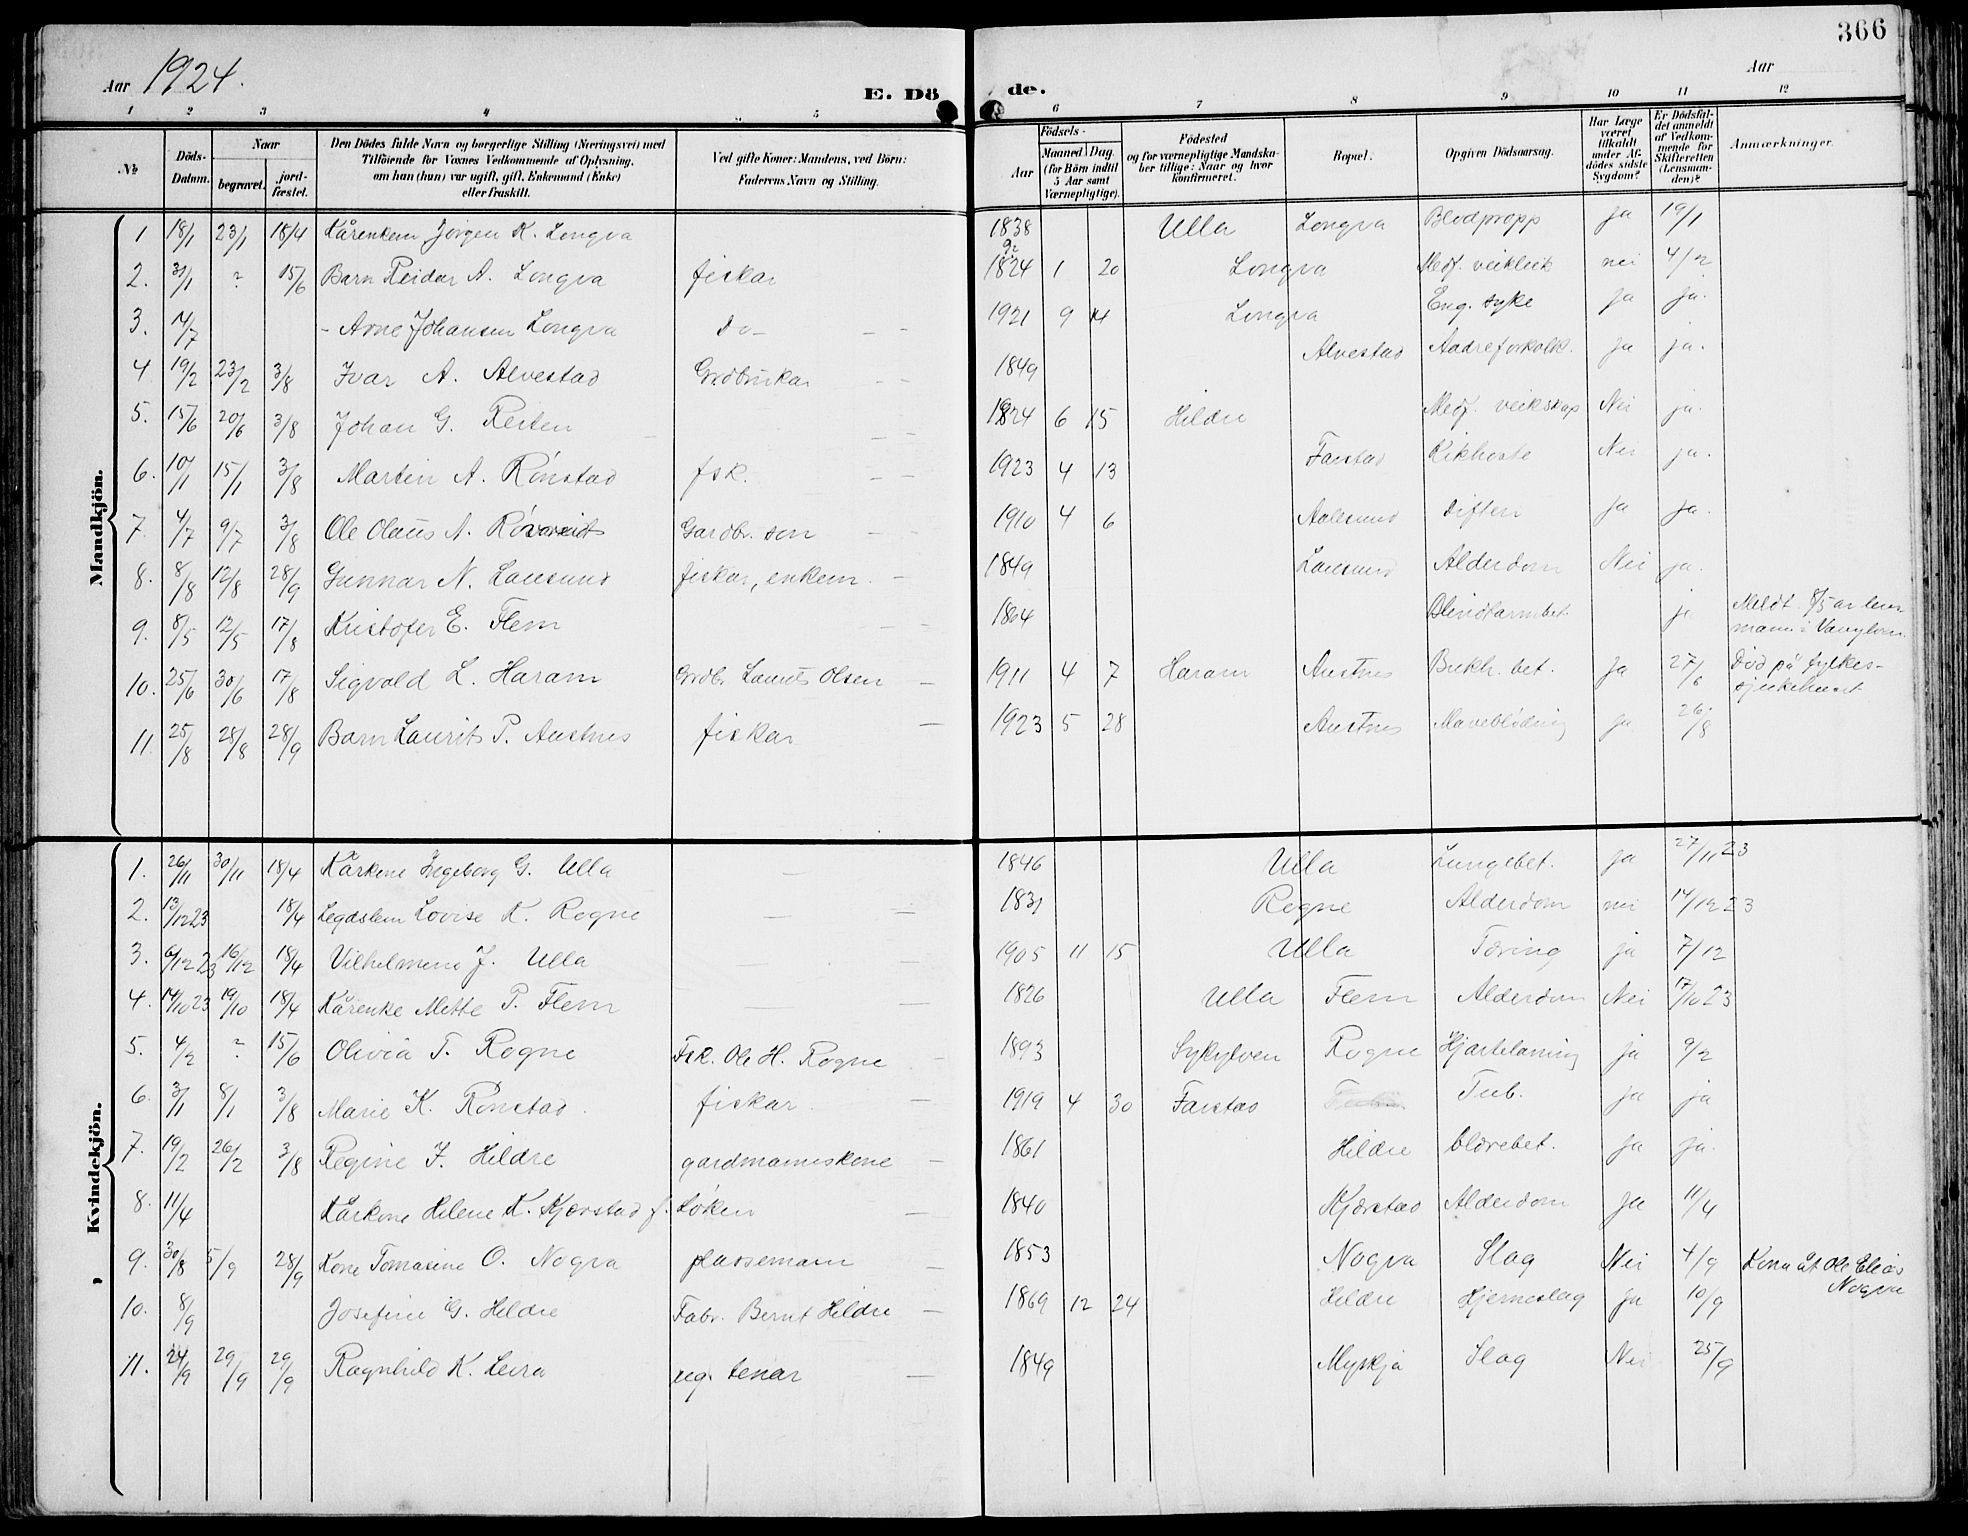 366
Aar 1924.
E. Dö de.
Aar
1 2 3 4 5 6 7 8 9 10 11 12
№
Döds-Datum.
Naar
begravet.
jordfæstet.
Den Dödes fulde Navn og borgerlige Stilling (Næringsvei) med
Tilföiende for Voxnes Vedkommende af Oplysning,
om han (hun) var ugift, gift, Enkemand (Enke)
eller fraskilt.
Ved gifte Koner: Mandens, ved Börn:
Faderens Navn og Stilling.
Födsels-
Aar
Maaned Dag.
(for Börn indtil
5 Aar samt
Værnepligtige).
Födested
og for værnepligtige Mandska-
ber tillige: Naar og hvor
konfirmeret.
Bopæl.
Opgiven Dödsaarsag.
Har Læge
været
tilkaldt
under Af-
dödes sidste
Sygdom?
Er Dödsfal-
det anmeldt
af Vedkom-
mende for
Skifteretten
(Lensman-
den)?
Anmærkninger.
Mandkjön.
1 18/1 23/1 18/4 Kårenkem Jørgen K. Longva 1838 Ulla Longva Blodpropp ja 19/1
2. 31/1 ? 15/6 Barn Reidar A. Longva fiskar 1924 1 20 Longva Medf. veikleik nei 4/2
3. 14/7 - Arne Johansen Longva Do - 1921 9 14 Longva Eng. syke ja ja.
4 19/2 23/2 3/8 Ivar A. Alvestad Grdbrukar 1849 Alvestad Aadreforkalk. ja ja.
5. 15/6 20/6 3/8 Johan G. Reiten 1924 6 15 Hildre Medf. veikskap Nei ja.
6. 10/1 15/1 3/8 Martin A. Rønstad fsk. 1923 4 13 Farstad Kikhoste Nei ja.
7. 4/7 9/7 3/8 Ole Olaus A. Gardbr. son 1910 4 6 Aalesund Difteri ja ja.
8. 8/8 12/8 28/9 Gunnar N. Lausund fiskar, enkem. 1849 Lausund Alderdom Nei ja.
9. 8/5 12/5 17/8 Kristofer E. Flem 1864 Blindtarmbet. ja Meldt 8/5 av lens
mann i Vanylven.
10. 25/6 30/6 17/8 Sigvald L. Haram Grdbr. Laurits Olsen 1911 4 7 Haram Austnes Bukh. bet. ja 27/6 Død på fylkes-
sjukehuset
11. 25/8 28/8 28/9 Barn Laurits P. Austnes fiskar 1923 5 28 Austnes Maveblødning ja 26/8
Kvindekjön.
1. 26/11 30/11 18/4 Kårkone Ingeborg G. Ulla 1846 Ulla Lungebet. ja 27/11 23
2. 13/12 23 18/4 Legdslem Lovise K. Rogne 1831 Rogne Alderdom nei 14/12 23
3. 6/12 23 16/12 18/4 Vilhelmine J. Ulla 1905 11 15 Ulla Tæring ja 7/12
4. 14/10 23 19/10 18/4 Kårenke Mette P. Flem 1826 Ulla Flem Alderdom Nei 17/10 23
5. 4/2 ? 15/6 Olivia T. Rogne Fsk. Ole H. Rogne 1893 Sykylven Rogne Hjartelaming ja 9/2
6. 3/1 8/1 3/8 Marie K. Rønstad. fiskar 1919 4 30 Farstad Tub. ja ja
7. 19/2 26/2 3/8 Regine J. Hildre gardmannskone 1861 Hildre blærebet. ja ja.
8. 11/4 Kårkone Helene K. Kjærstad f. Løken 1840 Kjærstad Alderdom ja 11/4
9. 30/8 5/9 28/9 Kone Tomasine O. Nogva plassemann 1853 Nogva Slag Nei 4/9 Kona åt Ole Elias
Nogva
10. 8/9 Josefine G. Hildre Fabr. Bernt Hildre 1869 12 24 Hildre Hjerneslag ja 10/9
11. 24/9 29/9 29/9 Ragnhild K. Leira ug. tenar 1849 Myskja Slag Nei 25/9